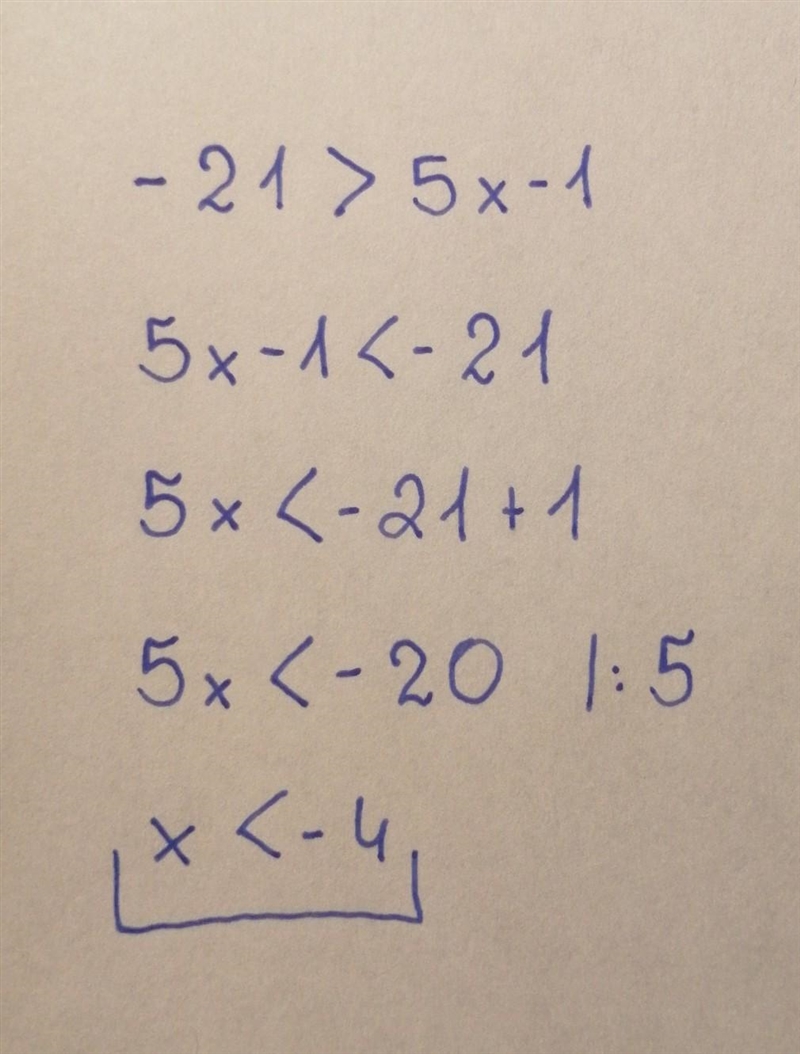 -21 > 5x-1
5x-1 <-21
5x <-21+1
5x <-20 |:5
x <-4